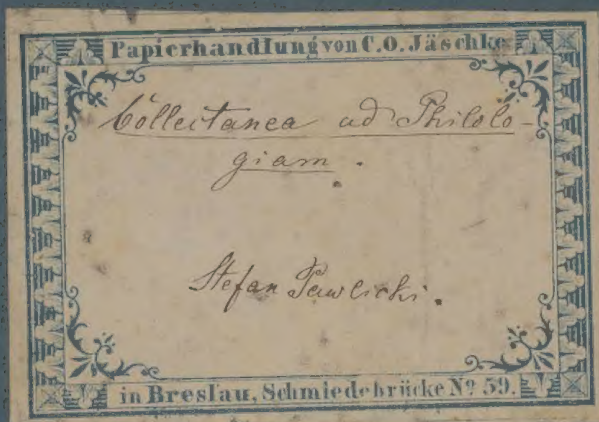 Papierhandlung von C. O. Jäschke
Collectanea ad Philolo-
giam.
Stefan Pawlicki.
in Breslau, Schmiedebrücke No 59.